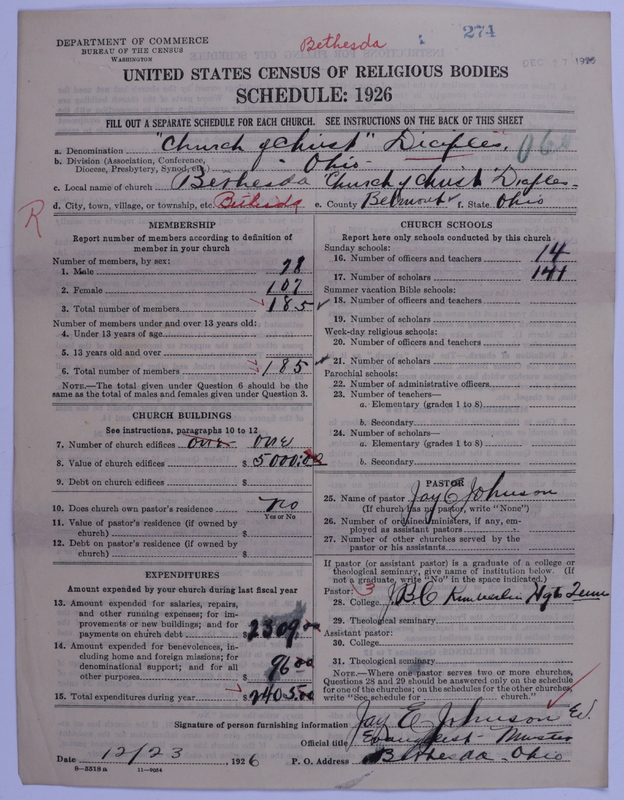 DEPARTMENT OF COMMERCE
BUREAU OF THE CENSUS
WASHINGTON
Bethesda
274
DEC 17 1926
UNITED STATES CENSUS OF RELIGIOUS BODIES
SCHEDULE: 1926
FILL OUT A SEPARATE SCHEDULE FOR EACH CHURCH. SEE INSTRUCTIONS ON THE BACK OF THIS SHEET
a. Denomination "Church of Christ" Diciples.
b. Division (Association, Conference, Diocese, Presbytery, Synod, etc.) Ohio
c. Local name of church Bethesda Church of Christ Diciples
d. City, town, village, or township, etc. Bethesda e. County Belmont f. State Ohio
R
MEMBERSHIP
Report number of members according to definition of
member in your church
Number of members, by sex:
1. Male 78
2. Female 107
3. Total number of members 185
Number of members under and over 13 years old:
4. Under 13 years of age
5. 13 years old and over
6. Total number of members 185
NOTE.—The total given under Question 6 should be the
same as the total of males and females given under Question 3.
CHURCH BUILDINGS
See instructions, paragraphs 10 to 12
7. Number of church edifices one one
8. Value of church edifices $ 5000.00
9. Debt on church edifices $
10. Does church own pastor's residence No
Yes or No
11. Value of pastor's residence (if owned by
church) $
12. Debt on pastor's residence (if owned by
church) $
EXPENDITURES
Amount expended by your church during last fiscal year
13. Amount expended for salaries, repairs,
and other running expenses; for im-
provements or new buildings; and for
payments on church debt $ 2309.00
14. Amount expended for benevolences, in-
cluding home and foreign missions; for
denominational support; and for all
other purposes $ 96.00
15. Total expenditures during year $ 2405.00
CHURCH SCHOOLS
Report here only schools conducted by this church
Sunday schools:
16. Number of officers and teachers 14
17. Number of scholars 141
Summer vacation Bible schools:
18. Number of officers and teachers
19. Number of scholars
Week-day religious schools:
20. Number of officers and teachers
21. Number of scholars
Parochial schools:
22. Number of administrative officers
23. Number of teachers—
a. Elementary (grades 1 to 8)
b. Secondary
24. Number of scholars—
a. Elementary (grades 1 to 8)
b. Secondary
PASTOR
25. Name of pastor Jay E Johnson
(If church has no pastor, write "None")
26. Number of ordained ministers, if any, em-
ployed as assistant pastors
27. Number of other churches served by the
pastor or his assistants
If pastor (or assistant pastor) is a graduate of a college or
theological seminary, give name of institution below. (If
not a graduate, write "No" in the space indicated.)
Pastor: 3
28. College J.B.C Kimberlin Hgts Tenn
29. Theological seminary
Assistant pastor:
30. College
31. Theological seminary
NOTE.—Where one pastor serves two or more churches,
Questions 28 and 29 should be answered only on the schedule
for one of the churches; on the schedules for the other churches,
write "See schedule for church."
Signature of person furnishing information Jay E Johnson
Official title Evangelist - Minister
Date 12/23, 1926 P. O. Address Bethesda Ohio
8—5518a 11—9024